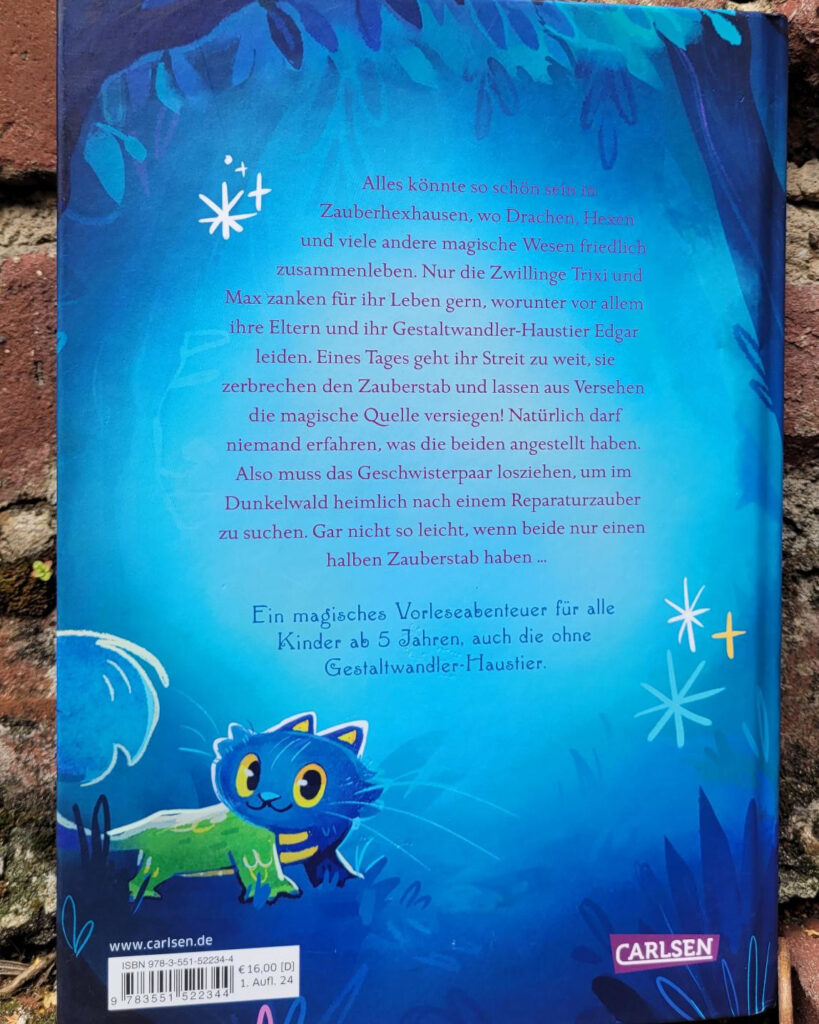 Alles könnte so schön sein in
Zauberhexhausen, wo Drachen, Hexen
und viele andere magische Wesen friedlich
zusammenleben. Nur die Zwillinge Trixi und
Max zanken für ihr Leben gern, worunter vor allem
ihre Eltern und ihr Gestaltwandler-Haustier Edgar
leiden. Eines Tages geht ihr Streit zu weit, sie
zerbrechen den Zauberstab und lassen aus Versehen
die magische Quelle versiegen! Natürlich darf
niemand erfahren, was die beiden angestellt haben.
Also muss das Geschwisterpaar losziehen, um im
Dunkelwald heimlich nach einem Reparaturzauber
zu suchen. Gar nicht so leicht, wenn beide nur einen
halben Zauberstab haben ...
Ein magisches Vorleseabenteuer für alle
Kinder ab 5 Jahren, auch die ohne
Gestaltwandler-Haustier.
www.carlsen.de
ISBN 978-3-551-52234-4
€ 16,00 [D]
1. Aufl. 24
9 783551 522344
CARLSEN